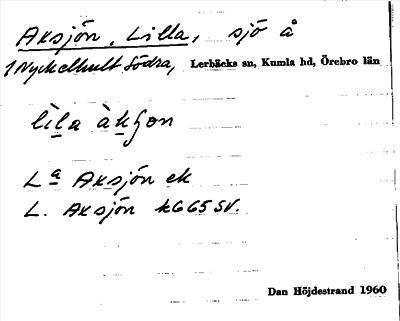 Axsjön, Lilla, sjö å
1 Nyckelhult Södra, Lerbäcks sn, Kumla hd, Örebro län
lìla àkʃon
La Axsjön ek
L. Axsjön k6G5SV.
Dan Höjdestrand 1960